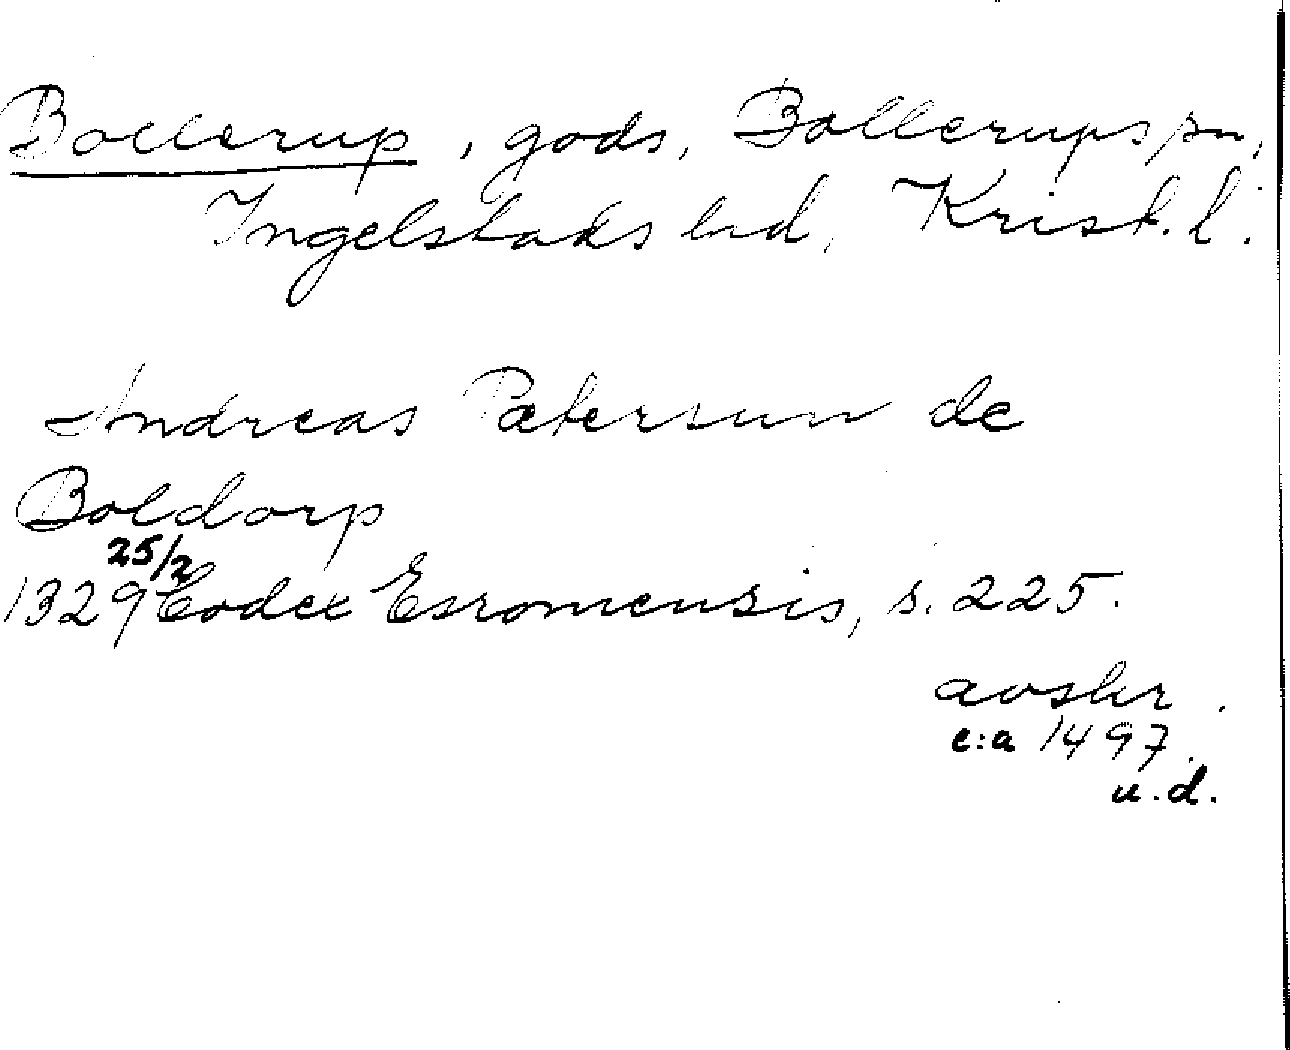 Bollerup, gods, Bollerups sn,
Ingelstads hd, Krist. l.
Andreas Pætersun de
Boldorp
25/2
1329 Codex Esromensis, s. 225.
avskr.
c:a 1497.
u.d.